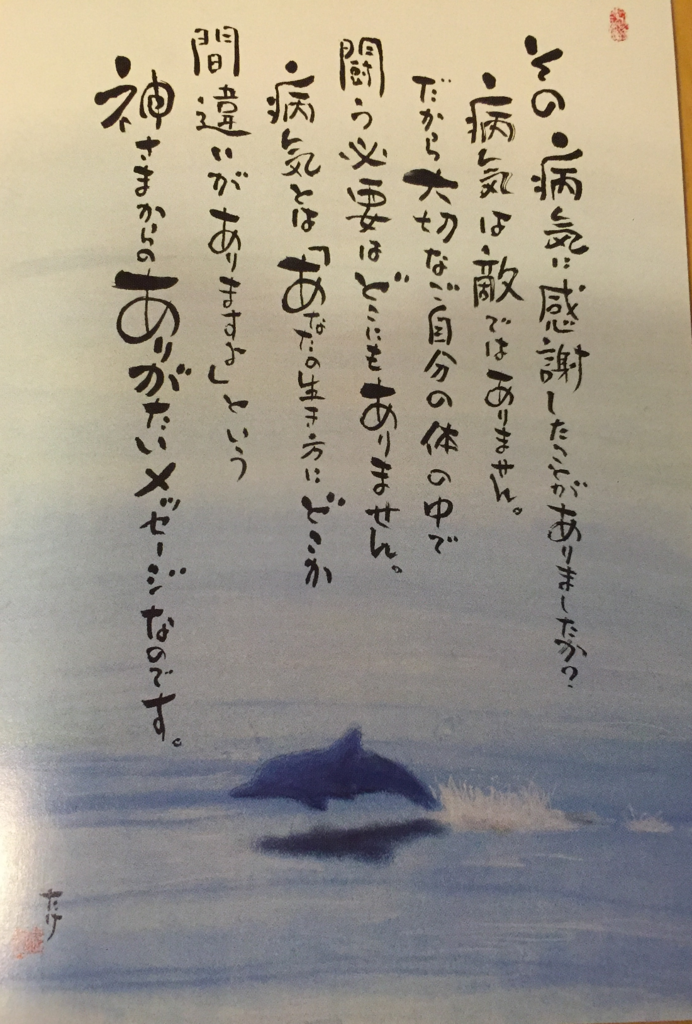 その病気に感謝したことがありましたか?
病気は敵ではありません。
だから大切なご自分の体の中で
闘う必要はどこにもありません。
病気とは「あなたの生き方にどこか
間違いがありますよ」という
神さまからのありがたいメッセージなのです。
たけ